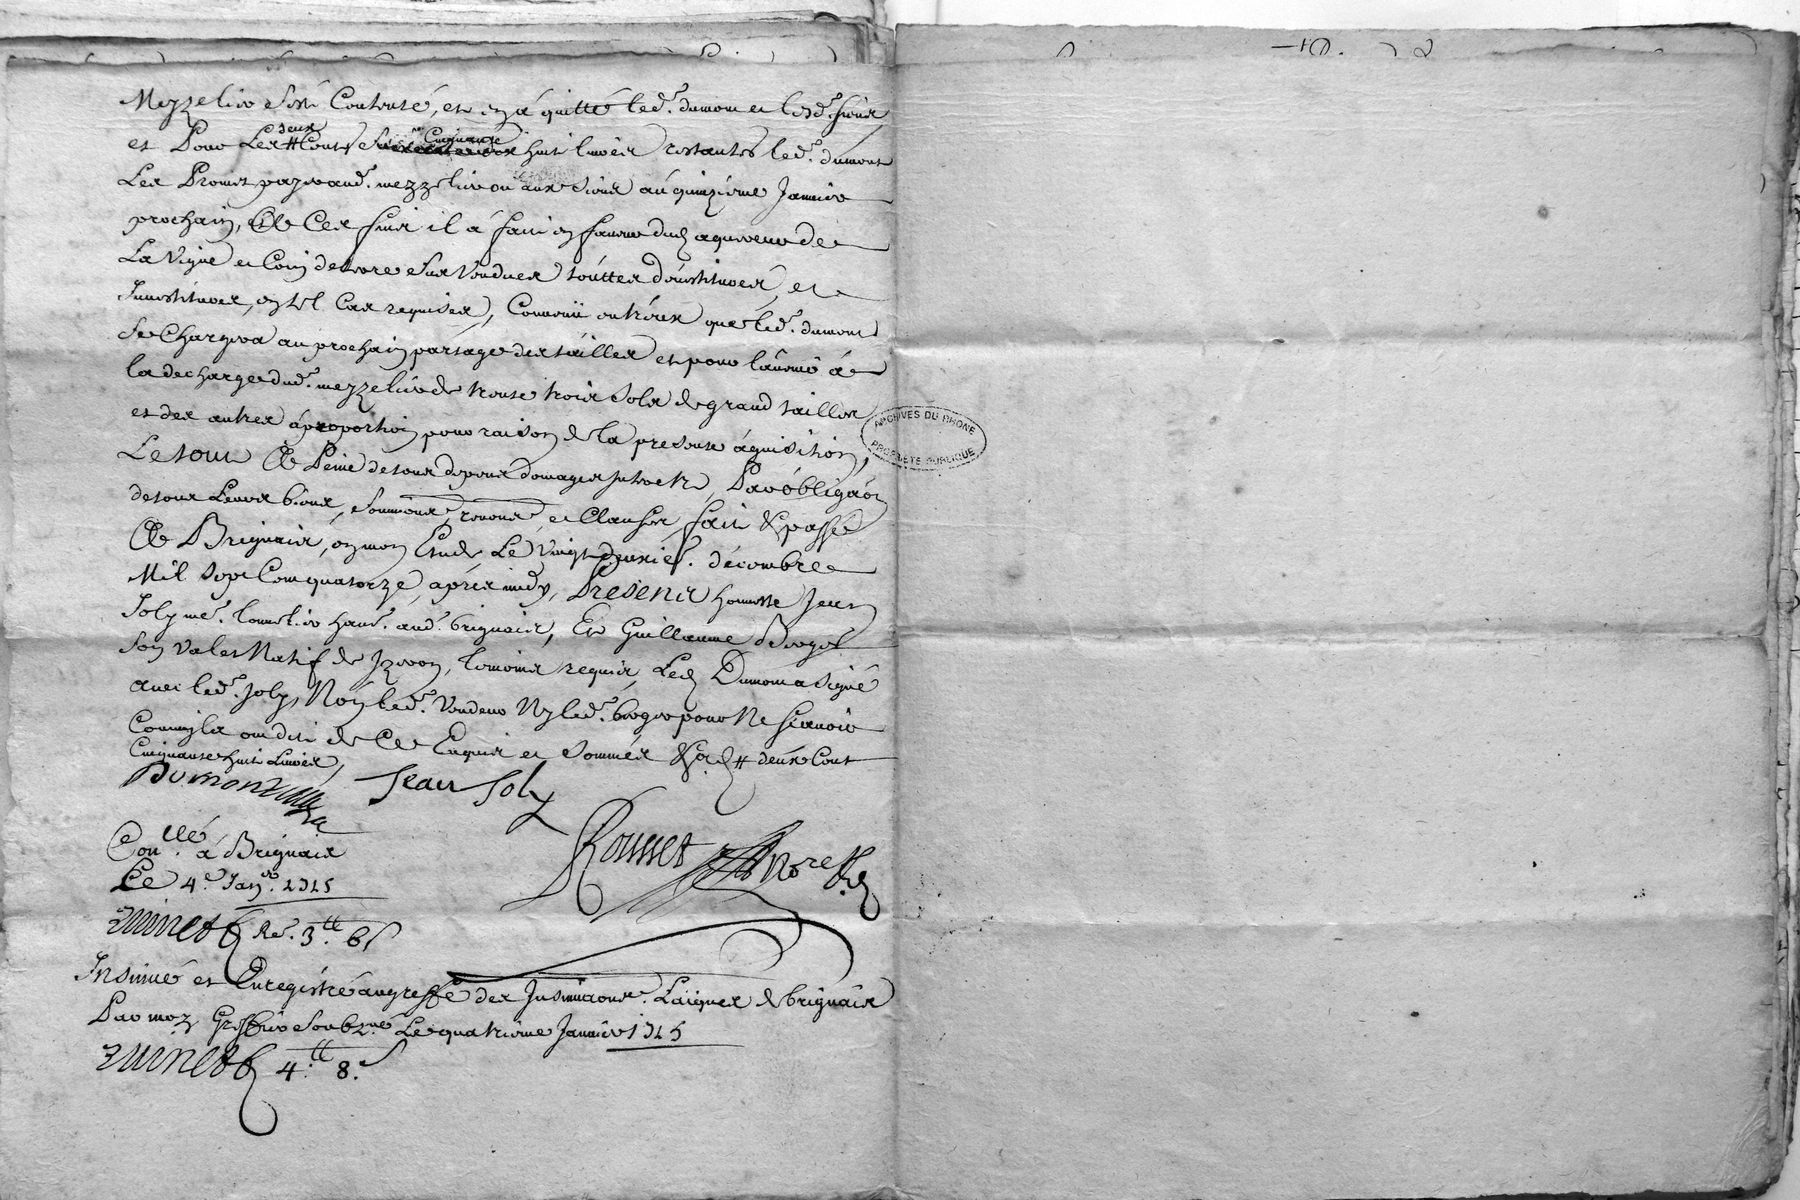 Mezzelier s'est Contenté, et en a quitté led.t dumont et lesd.ts siens
et Pour Les deux # Cents Cinquante huit livres restantes led.t dumont
Les Promet payer aud.t mezzelier ou aux siens au quinzieme Janvier
prochain, Et de Ces fins il a fait en faveur dud aquereur de
La Vigne et Coin de terre sus Vendues touttes devestitures, et
Investitures, en tel Cas requises, Convenü entr'eux que led.t dumont
se Chargera au prochain partage des tailles et pour l'avenir a
la decharge dud.t mezzelier de trente trois sols de grand tailles
et des autres á proportion pour raison de la presente áquisition,
Le tout A Peine de tous depens domages interets, Par obliga͠on
de tous Leurs biens, soumi͠ons, renon͠s, et Clauses, fait & passé
A Brignais, en mon Etude Le Vingt deuxie.e décembre
Mil sept Cent quatorze, aprés midy, Presents honneste Jean
Joly me. tonnelier hant. aud. brignais, Et Guillaume Broges
son valet Natif de Izeron, temoins requis, Led Dumont a signé
avec led.t Joly, Non led.t Vendeur Ny led.t broges pour Ne scavoir
Comme ils ont dit de Ce Enquis et sommés # deux Cent
Cinquante huit Livres,
Dumont
Jean Joly
Rousset Nore
Con.llé á Brignais
Le 4.e Jan.er 1715
Re. 3.tt 6s
Insinué et Enregistré au greffe des Insinua͠ons Laiques de brignais
Par moy Greffier soubz.né Le quatrieme Janvier 1715
4.tt 8.s
ARCHIVES DU RHONE
PROPRIÉTÉ PUBLIQUE